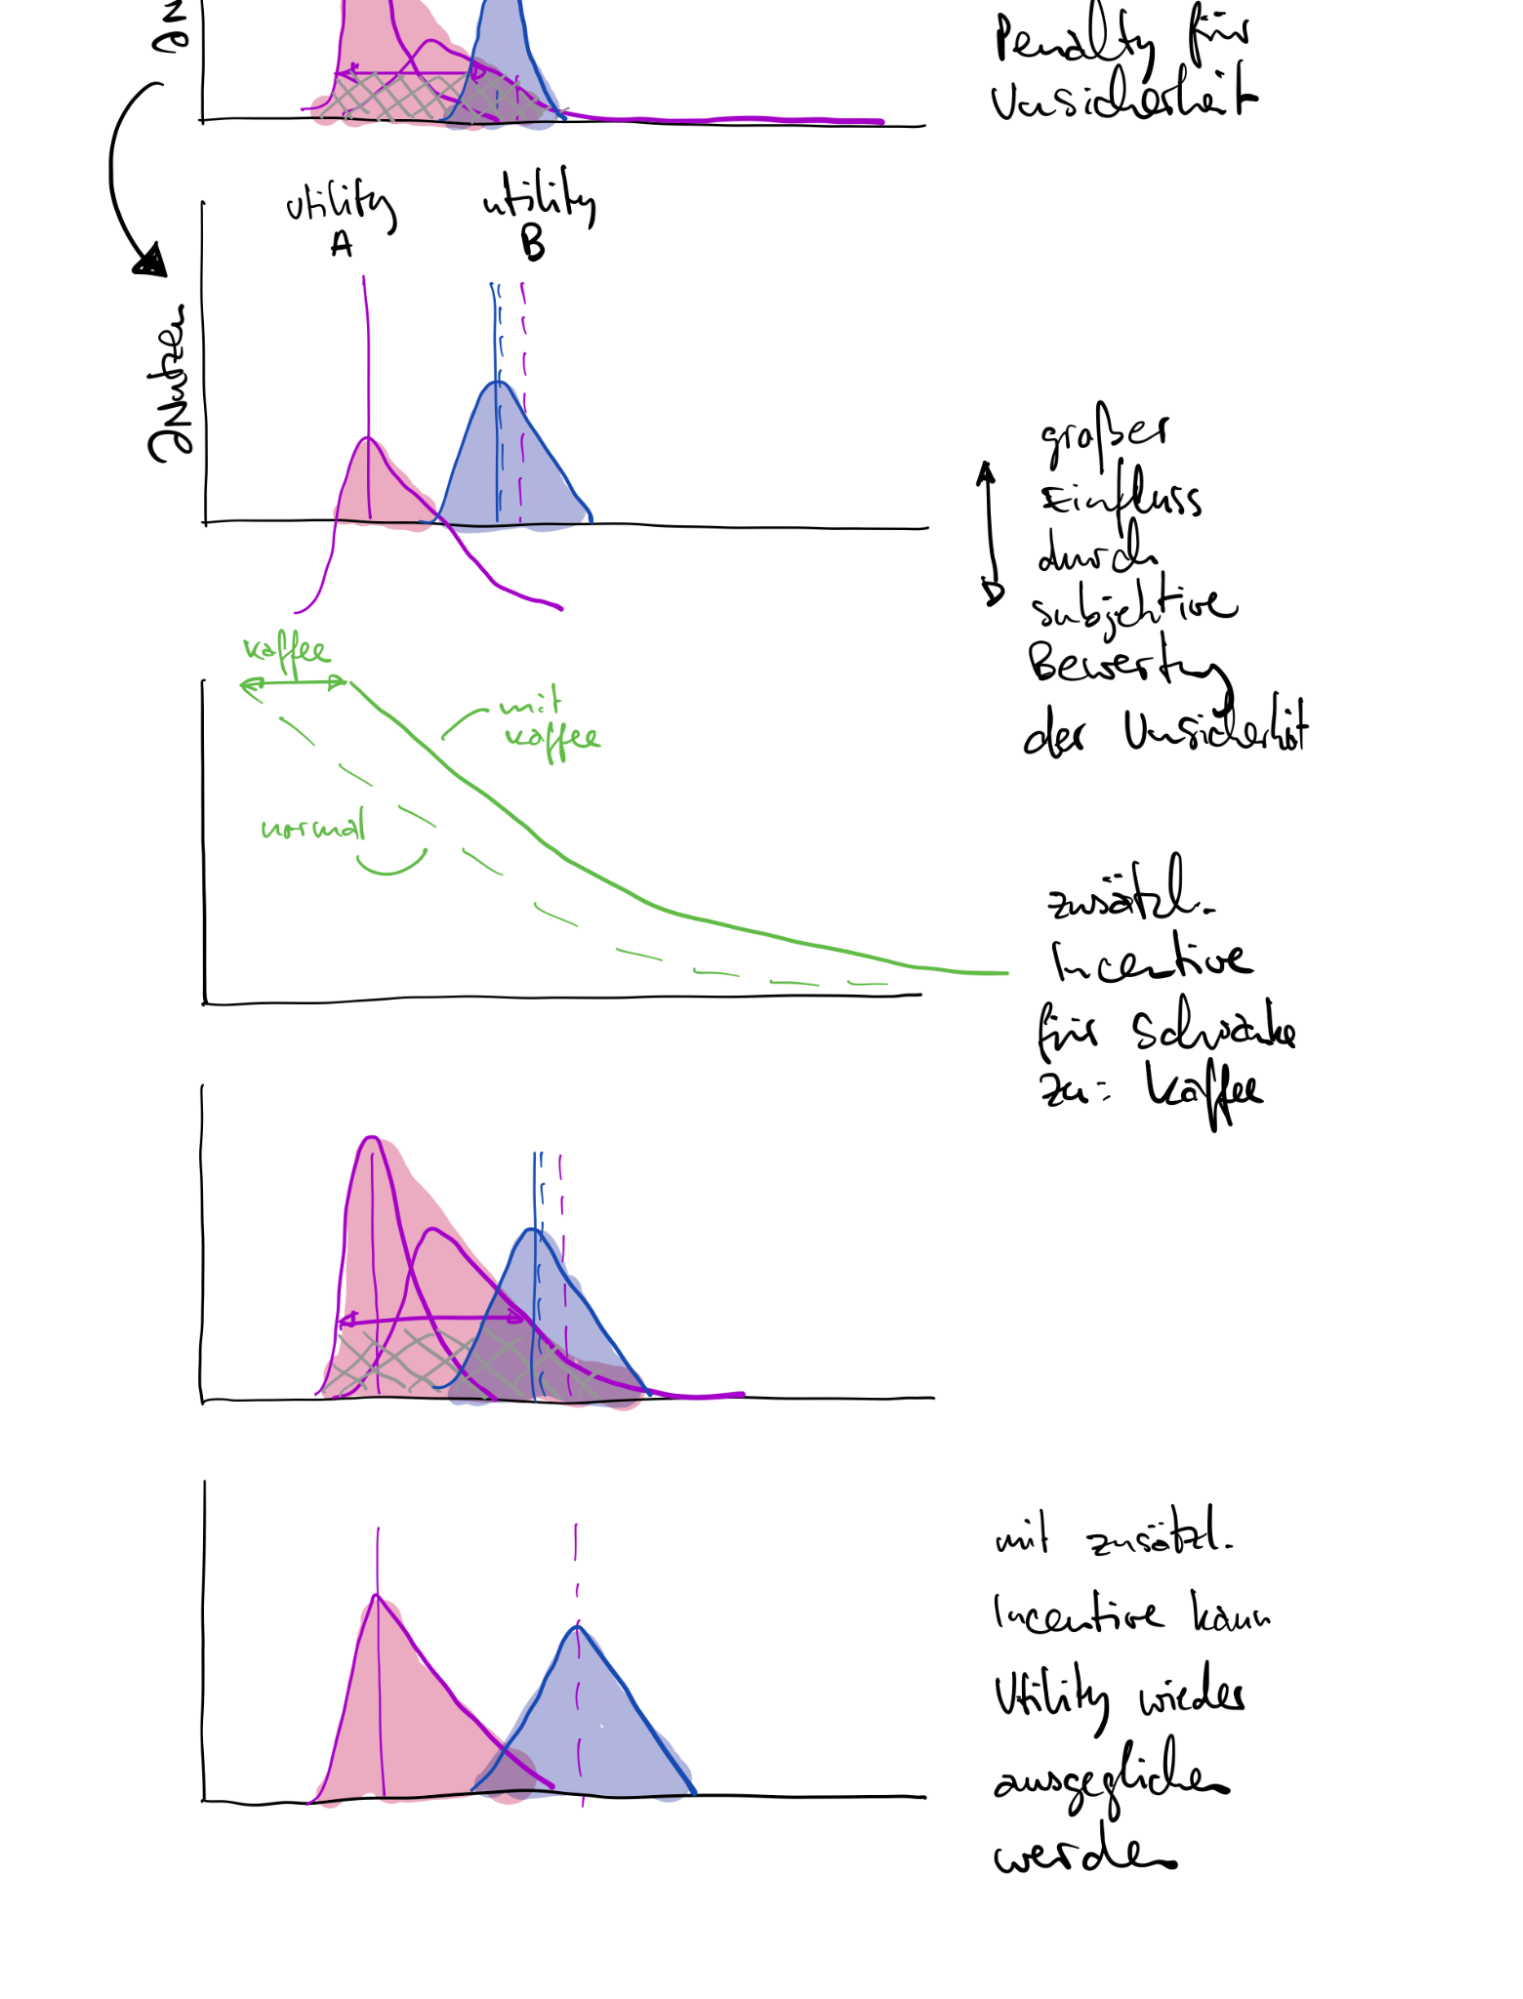 ∂N
Penalty für
Unsicherheit
utility
A
utility
B
∂Nutzen
großer
Einfluss
durch
subjektive
Bewertung
der Unsicherheit
kaffee
mit
kaffee
normal
zusätzl.
Incentive
für Schwanke
zu: Kaffee
mit zusätzl.
Incentive kann
Utility wieder
ausgeglichen
werden